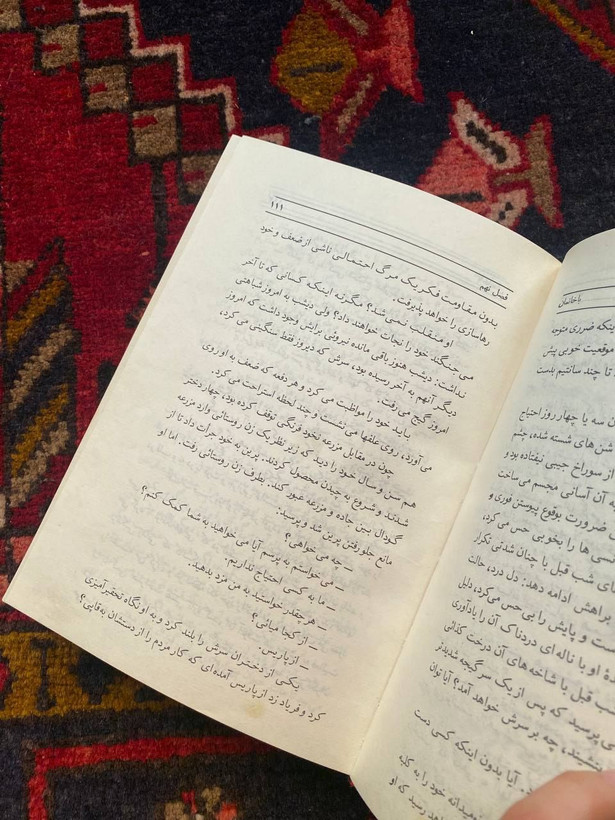 فصل نهم
۱۱۱
بدون مقاومت فکر یک مرگ احتمالی ناشی از ضعف و خود
رهاسازی را خواهد پذیرفت.
او منقلب نمی‌شد؟ مگر نه اینکه کسانی که تا آخر
می‌جنگند خود را نجات خواهند داد؟ ولی دیشب به امروز شباهتی
نداشت: دیشب هنوز باقی مانده نیروئی برایش وجود داشت که امروز
دیگر آنهم به آخر رسیده بود، سرش که دیروز فقط سنگینی می‌کرد،
امروز گیج می‌رفت.
باید خود را مواظبت می‌کرد و هر دفعه که ضعف به او روی
می‌آورد، روی علفها می‌نشست و چند لحظه استراحت می‌کرد.
چون در مقابل مزرعه نخود فرنگی توقف کرده بود، چهار دختر
هم سن و سال خود را دید که زیر نظر یک زن روستائی وارد مزرعه
شدند و شروع به چیدن محصول کردند. پرین به خود جرأت داد تا از
گودال بین جاده و مزرعه عبور کند. بطرف زن روستائی رفت. اما او
مانع جلو رفتن پرین شد و پرسید:
ــ چه می‌خواهی؟
ــ می‌خواستم به پرسم آیا می‌خواهید به شما کمک کنم؟
ــ ما به کسی احتیاج نداریم.
ــ هر چقدر خواستید به من مزد بدهید.
ــ از کجا میائی؟
ــ از پاریس.
یکی از دختران سرش را بلند کرد و به او نگاه تحقیرآمیزی
کرد و فریاد زد از پاریس آمده‌ای که کار مردم را از دستشان به‌قاپی؟
باخانمان
اینکه ضرری متوجه
موقعیت خوبی پیش
تا چند سانتیم بدست
سه یا چهار روز احتیاج
شن های شسته شده، چشم
از سوراخ جیبی نیفتاده بود و
آن آسانی مجسم می‌ساخت
ضرورت بوقوع پیوستن فوری و
ها را بخوبی حس می‌کرد،
شب قبل با چنان شدتی تکرار
براهش ادامه دهد: دل درد، حالت
و پایش را بی حس می‌کرد، دلیل
او با ناله‌ای دردناک آن را یادآوری
قبل با شاخه‌های آن درخت کذائی
پرسید که پس از یک سرگیجه شدیدتر
بنشیند، چه بر سرش خواهد آمد؟ آیا توان
آیا بدون اینکه کسی دست
خود را به کلبه
رسید که او